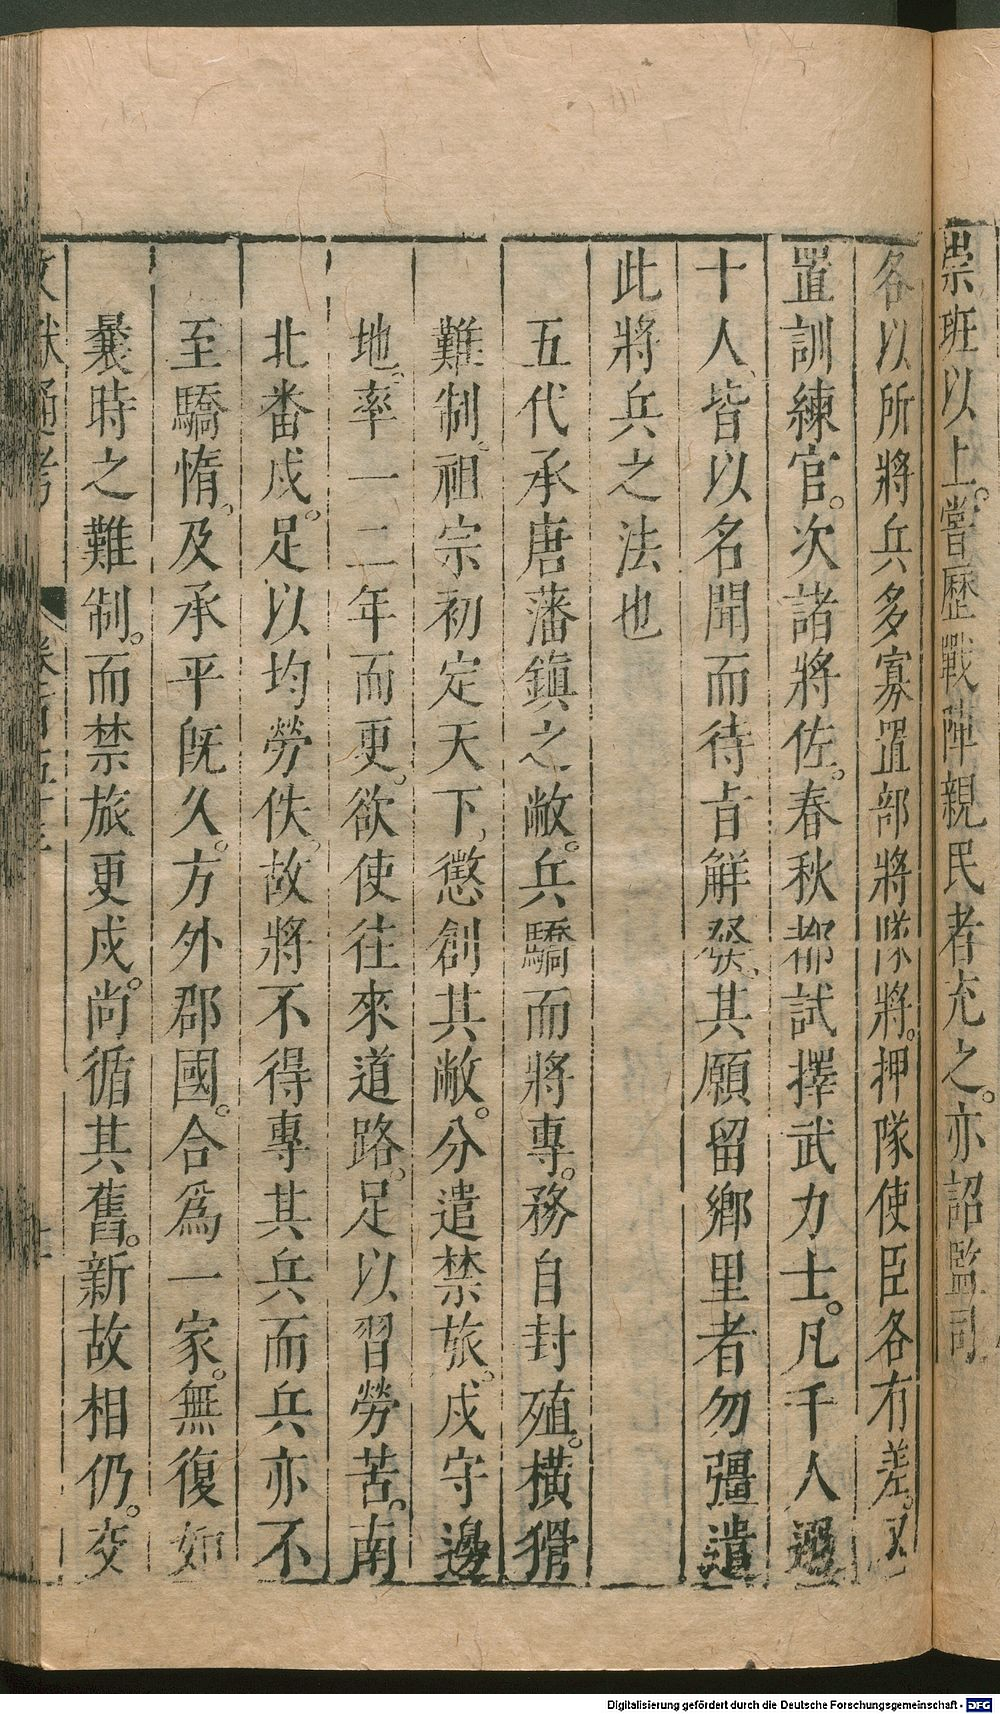 崇班以上。嘗歷戰陣親民者充之。亦詔監司
各以所將兵多寡置部將隊將。押隊使臣各有差。又
置訓練官。次諸將佐。春秋都試擇武力士。凡千人選
十人、皆以名聞而待旨解發、其願留鄉里者勿彊遣
此將兵之法也
五代承唐藩鎮之敝。兵驕而將專。務自封殖。橫猾
難制。祖宗初定天下、懲創其敝。分遣禁旅。戍守邊
地。率一二年而更。欲使往來道路。足以習勞苦。南
北番戍。足以均勞佚。故將不得專其兵而兵亦不
至驕惰、及承平旣久。方外郡國。合爲一家。無復如
曩時之難制。而禁旅更戍。尚循其舊。新故相仍。交
文獻通考
Digitalisierung gefördert durch die Deutsche Forschungsgemeinschaft - DFG